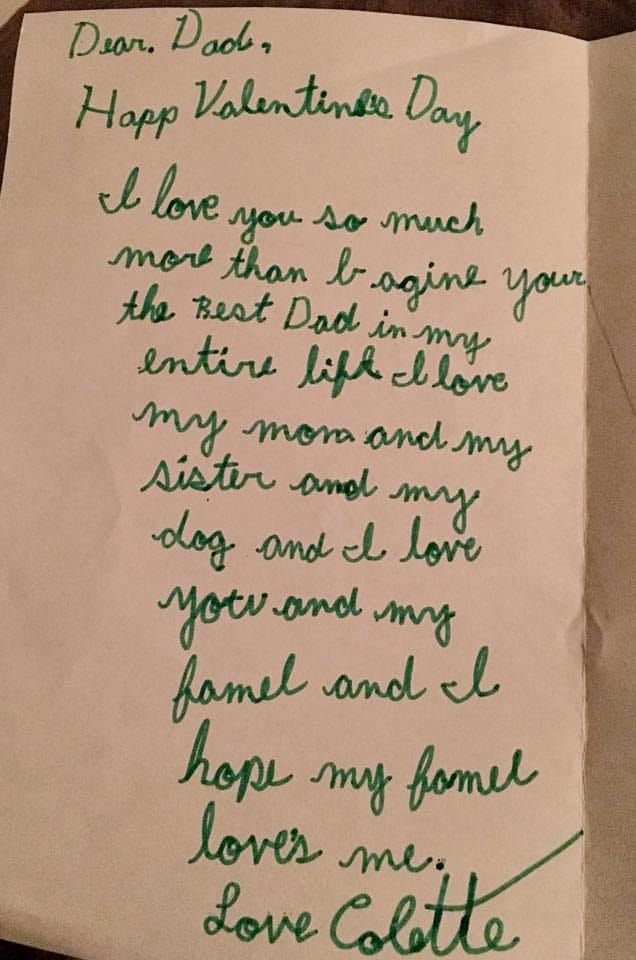 Dear. Dad,
Happ Valentine's Day
I love you so much
more than b-agine your
the Best Dad in my
entire life I love
my mom and my
sister and my
dog and I love
you and my
famel and I
hope my famel
love's me.
Love Colette